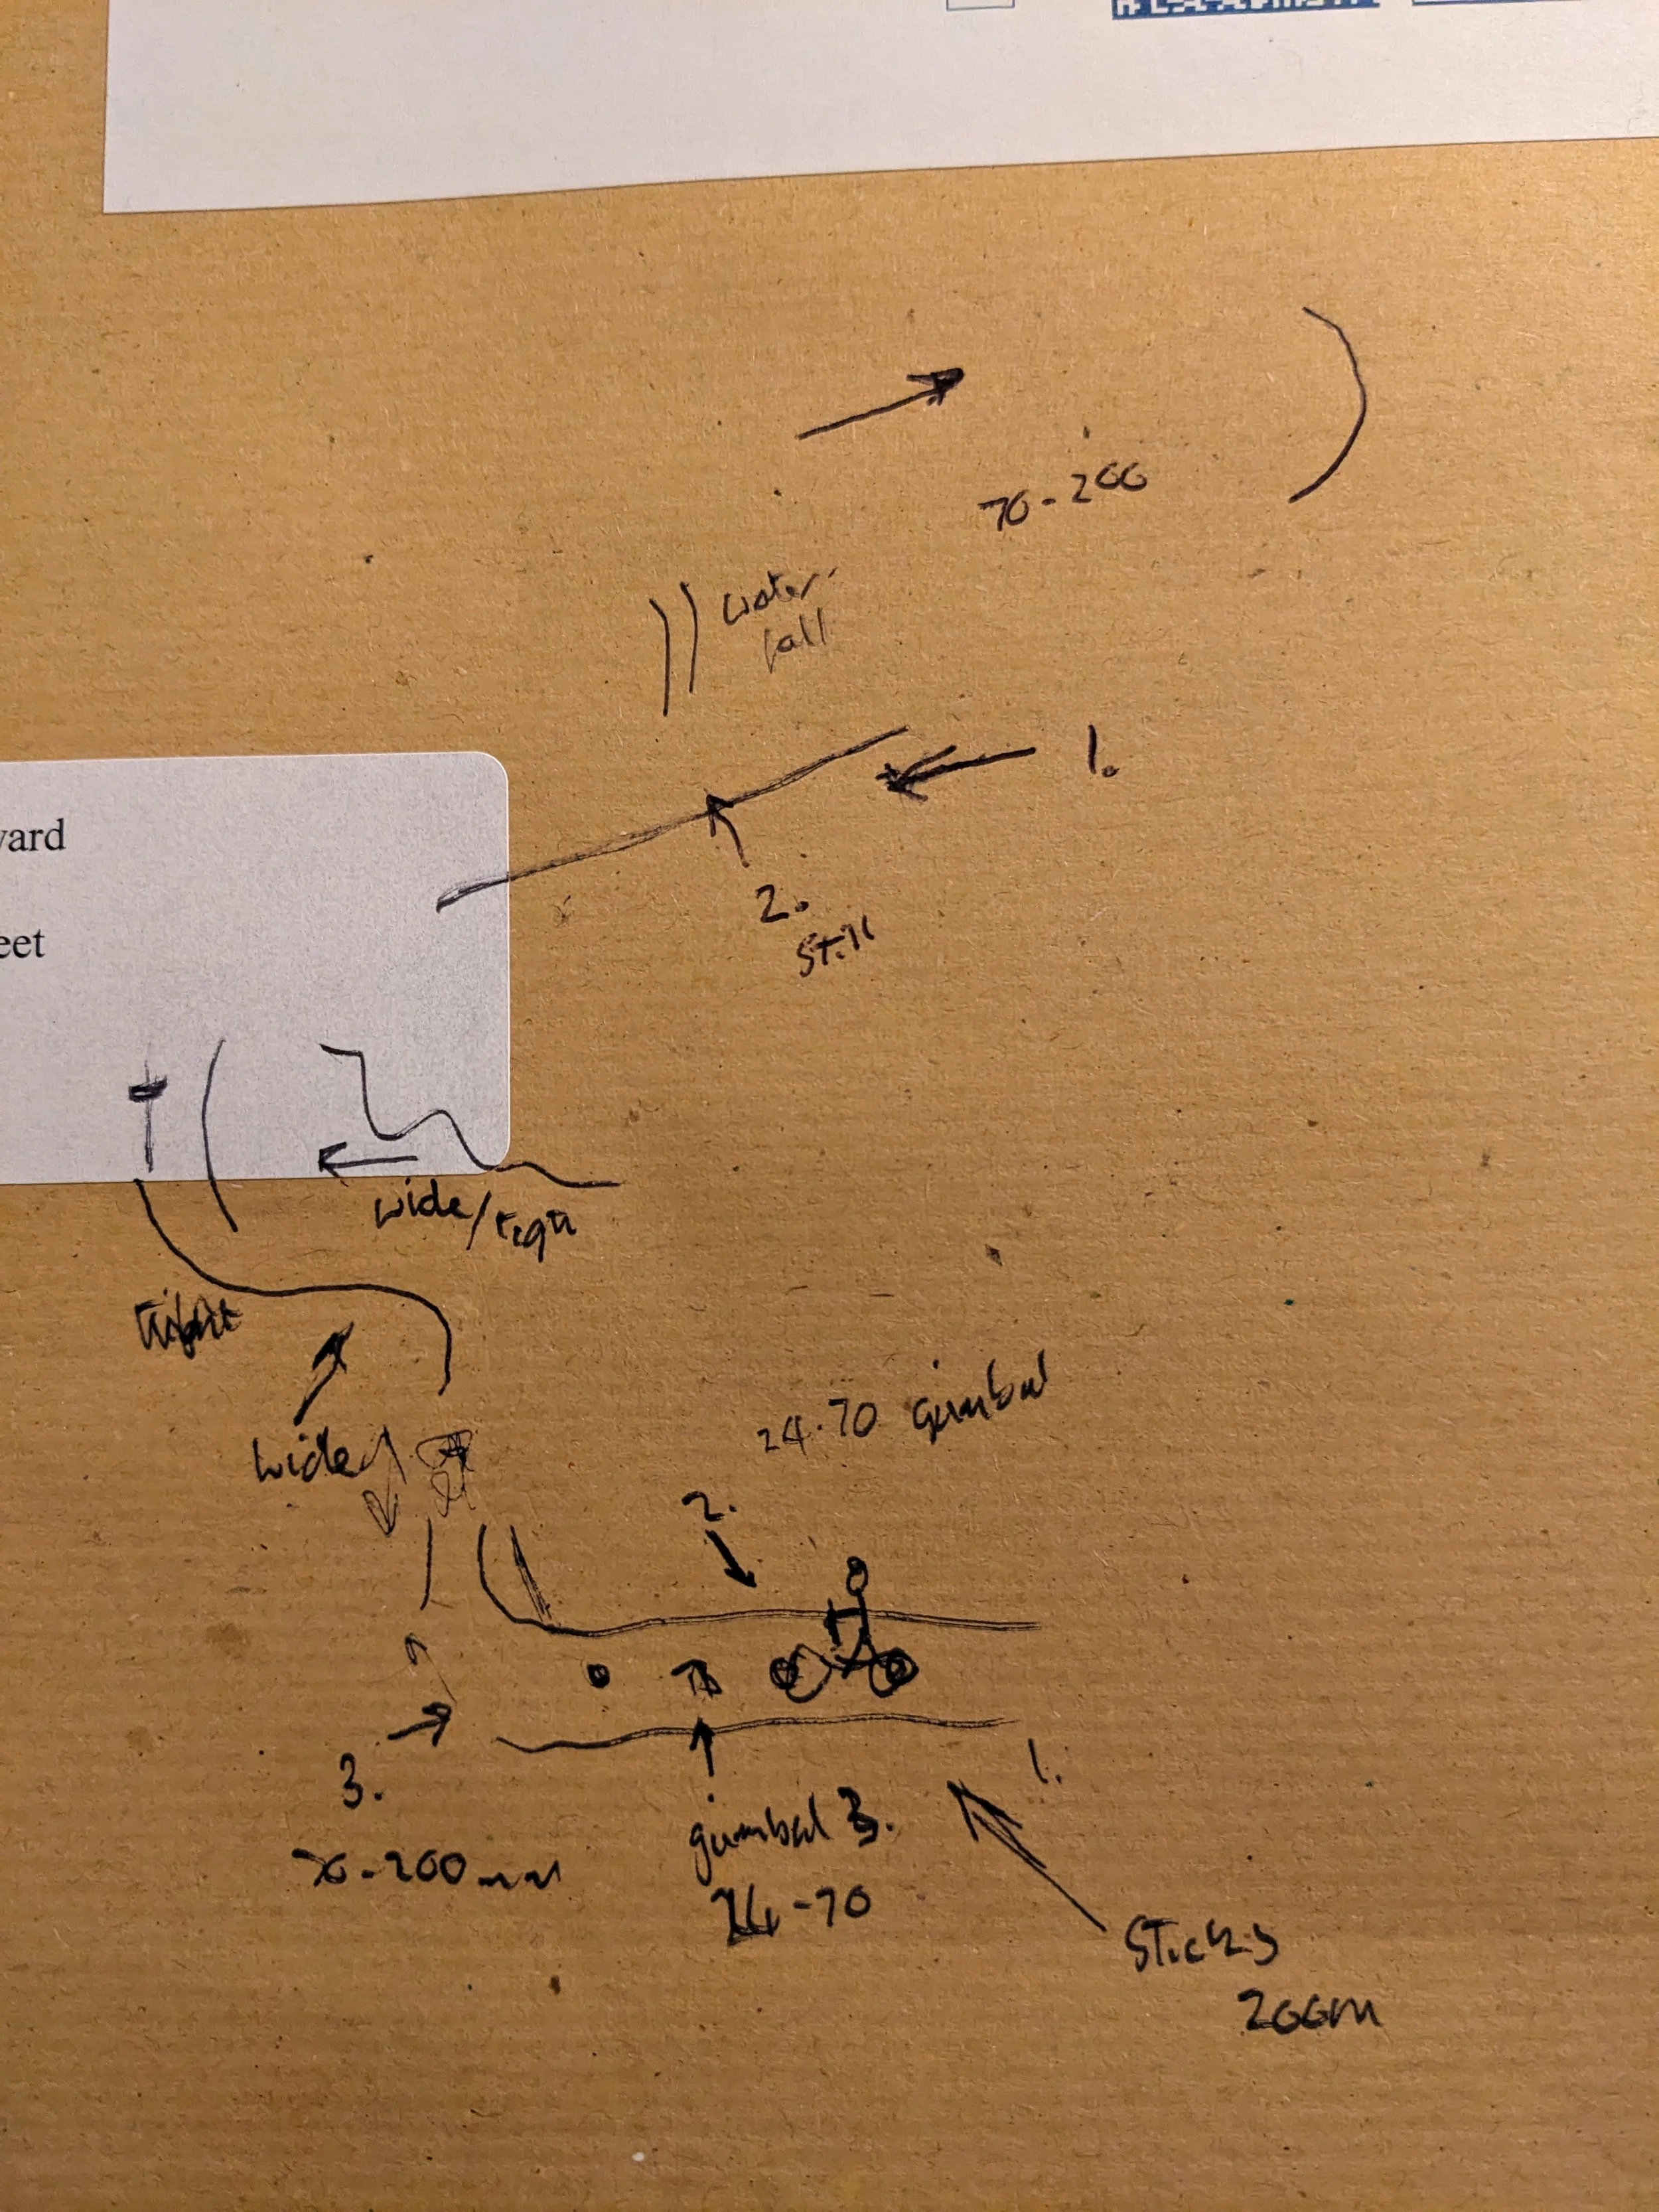 70-200
water-
fall
1.
ward
2.
eet
Still
wide/tight
Tight
wide
24-70 gimbal
2.
3.
1.
gimbal 3.
70-200mm
24-70
Sticks
200m